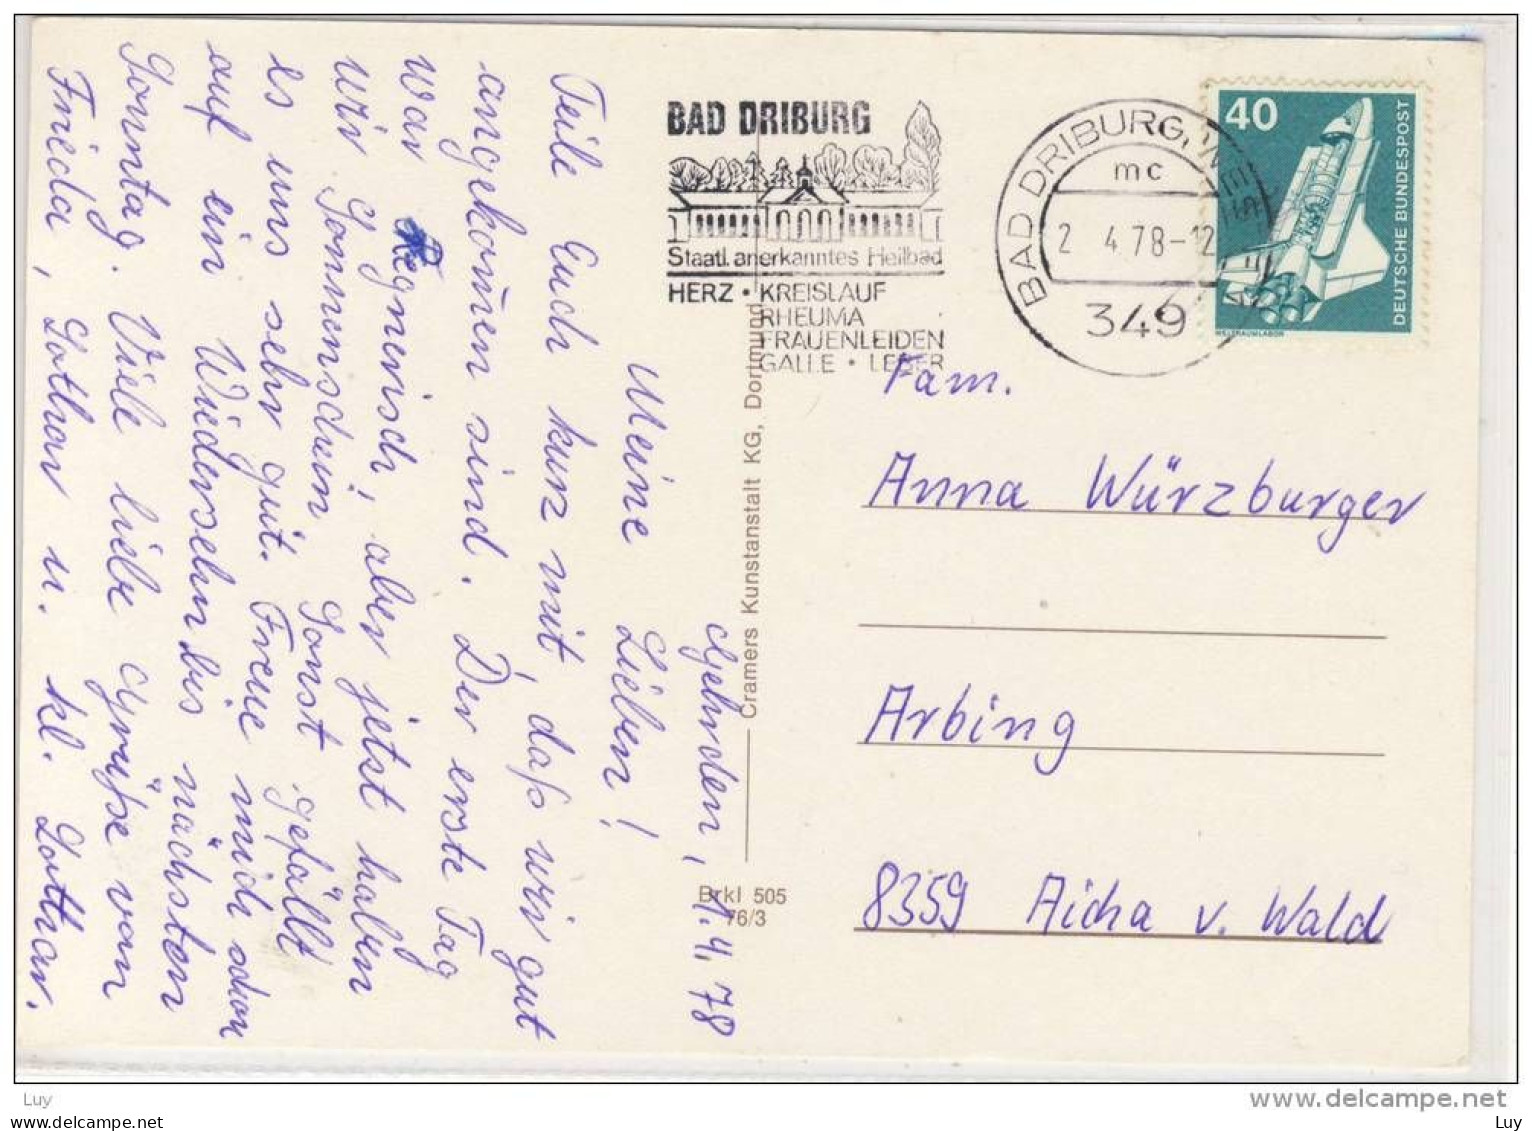 Gehrden, 1.4.78
Meine Lieben!
Teile Euch kurz mit, daß wir gut
angekom̄en sind. Der erste Tag
war Regnerisch, aber jetzt haben
wir Sonnenschein. Sonst gefällt
es uns sehr gut. Freue mich schon
auf ein Wiedersehn bis nächsten
Sonntag. Viele liebe Grüße von
Frieda, Lothar u. kl. Lothar.
BAD DRIBURG
Staatl. anerkanntes Heilbad
HERZ • KREISLAUF
RHEUMA
FRAUENLEIDEN
GALLE • LEBER
BAD DRIBURG, WESTF
mc
2. 4.78-12
349
40
DEUTSCHE BUNDESPOST
WELTRAUMLABOR
Cramers Kunstanstalt KG, Dortmund
Brkl 505
76/3
Fam.
Anna Würzburger
Arbing
8359 Aicha v. Wald
Luy
www.delcampe.net
www.delcampe.net
Luy